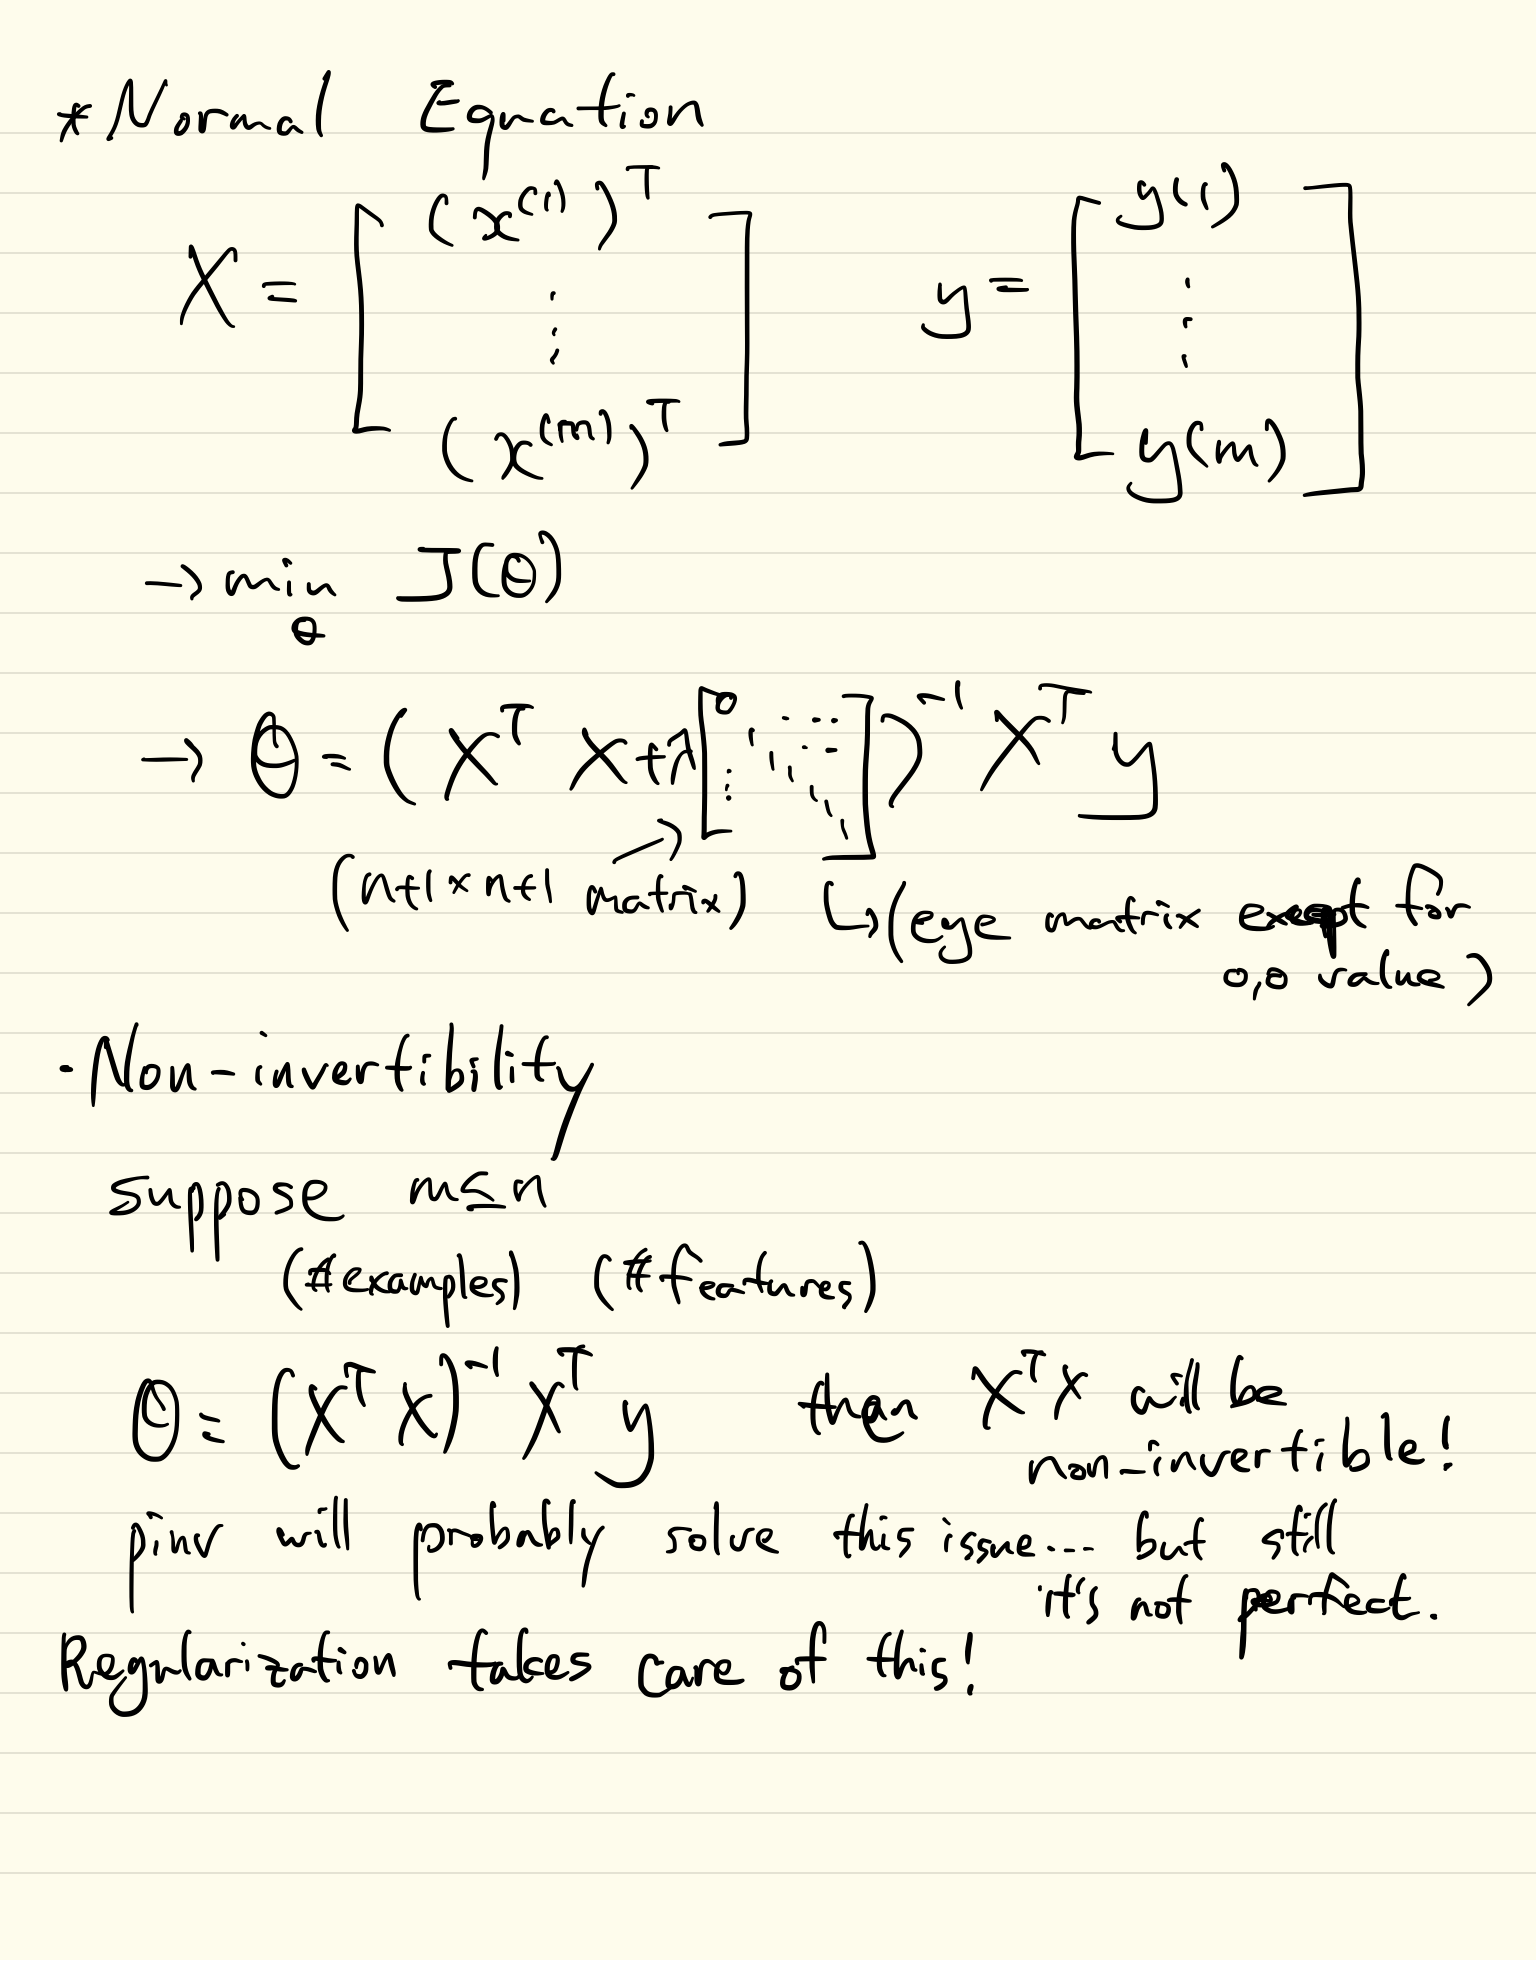 * Normal Equation
X = [ (x^(1))^T ⋮ (x^(m))^T ]   y = [ y(1) ⋮ y(m) ]
→ min_θ J(θ)
→ θ = ( X^T X + λ [ 0 ... 1 1 1 1 1 1 1 ] )^-1 X^T y
(n+1 × n+1 matrix) ↳ (eye matrix except for
0,0 value)
· Non-invertibility
suppose m ≤ n
(#examples) (#features)
θ = (X^T X)^-1 X^T y   then X^T X will be
non-invertible!
pinv will probably solve this issue... but still
it's not perfect.
Regularization takes care of this!